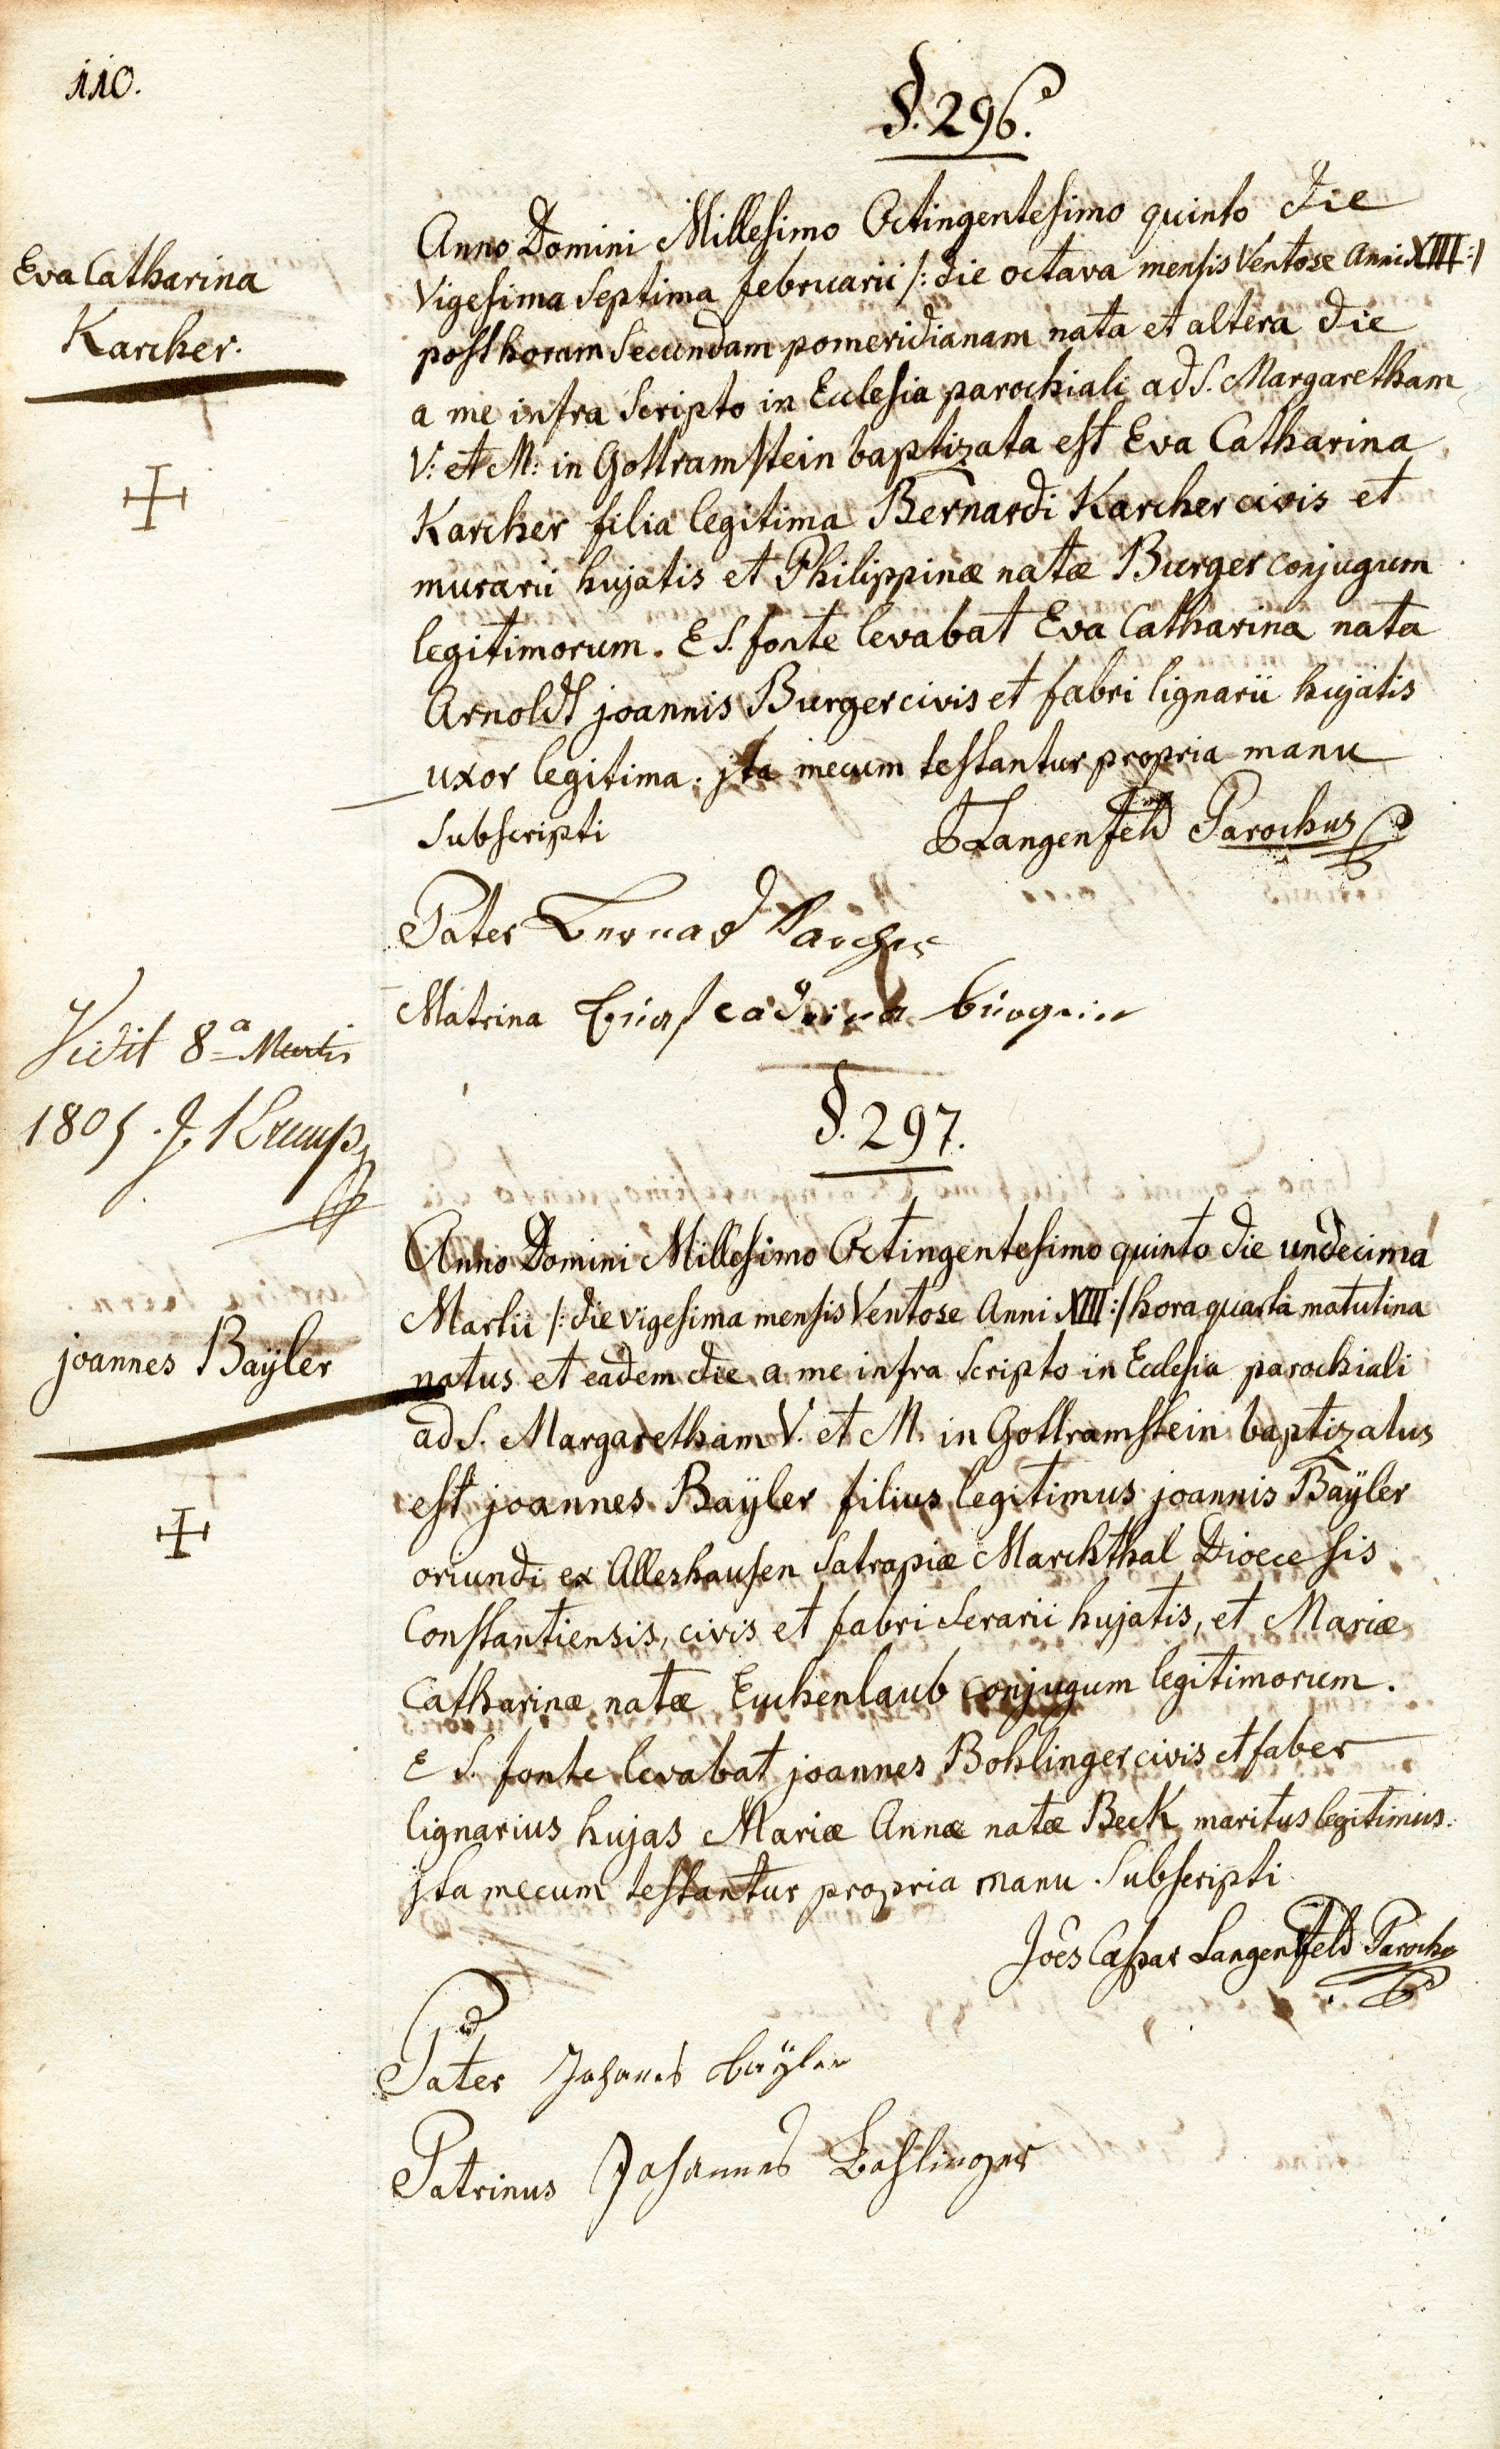 110.
§. 296.
Eva Catharina
Karcher.
Anno Domini Millesimo Octingentesimo quinto die
Vigesima Septima februarii /: die octava mensis Ventose Anni XIII :/
post horam Secundam pomeridianam nata et altera die
a me infra Scripto in Ecclesia parochiali ad S. Margaretham
V: et M: in Gottramstein baptizata est Eva Catharina
Karcher filia legitima Bernardi Karcher civis et
murarii hujatis et Philippinæ natæ Burger conjugum
legitimorum. E S. fonte levabat Eva Catharina nata
Arnoldt joannis Burger civis et fabri lignarii hujatis
uxor legitima. jta mecum testantur propria manu
Subscripti
Langenfeld Parochus
Pater Bernard Karcher
Matrina
Vidit 8a Martis
1805. J.
§. 297.
joannes Baÿler
Anno Domini Millesimo Octingentesimo quinto die undecima
Martii /: die vigesima mensis Ventose Anni XIII :/ hora quarta matutina
natus et eadem die a me infra Scripto in Ecclesia parochiali
ad S. Margaretham V. et M. in Gottramstein baptizatus
est joannes Baÿler filius legitimus joannis Baÿler
oriundi ex Alleshausen Satrapiæ Marchthal Dioecesis
Constantiensis, civis et fabri Serarii hujatis, et Mariæ
Catharinæ natæ Euchenlaub conjugum legitimorum.
E S. fonte levabat joannes Bohlinger civis et faber
lignarius hujas Mariæ Annæ natæ Beck maritus legitimus.
jta mecum testantur propria manu Subscripti
Joês Caspar Langenfeld Parochg
Pater Johanes baÿler
Patrinus Johannes Bohlinger